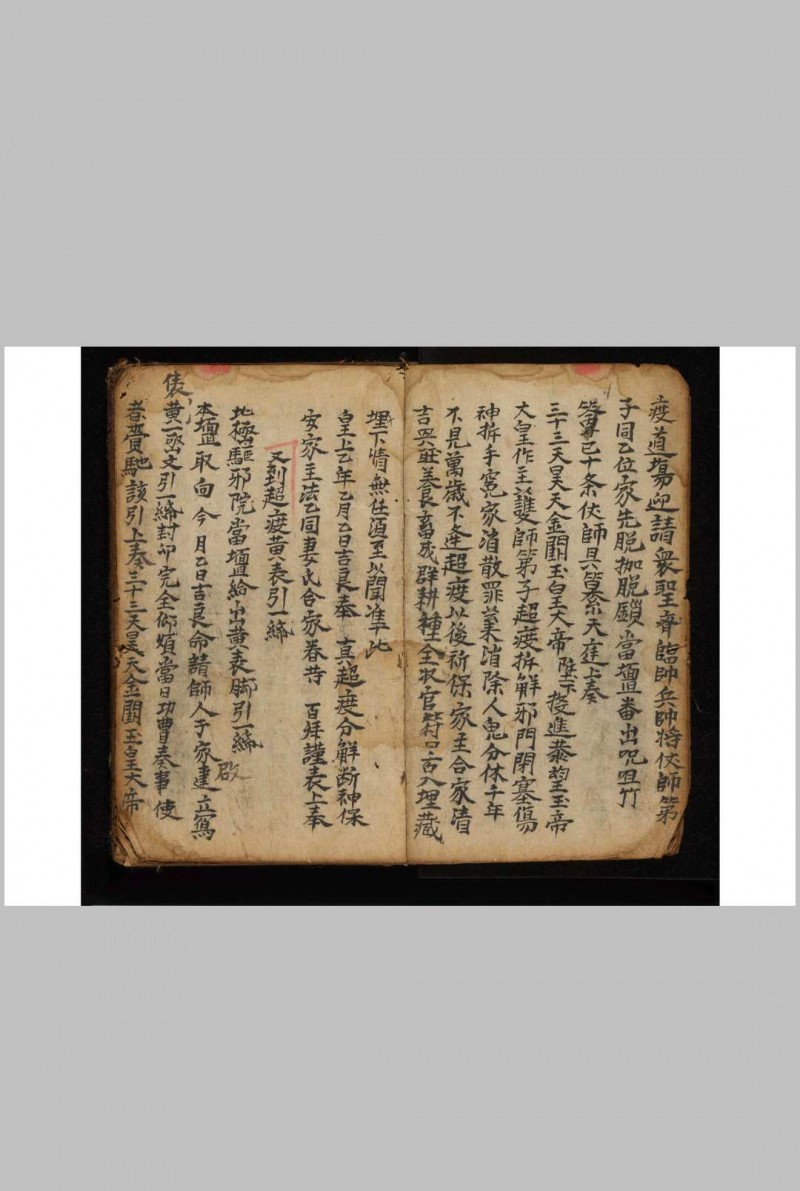 疫道場迎請衆聖齊臨帥兵帥将伏師第
子同乙位家先脱枷脱鎖當壇畨出呪咀竹
筶𥮉已十条伏師具篆天庭上奏
三十三天昊天金闕玉皇大帝陛下投進恭望玉帝
大皇作主護師第子超度拆解邪門閉塞傷
神拆手寃家消散罪業消除人鬼分休千年
不見萬歲不逢超度以後祈保家主合家清
吉興旺養畜成群耕種全收官符口舌入埋藏
埋下情無任酒至以聞准此
皇上乙年乙月乙日吉良奉 真超度分解断神保
安家主法乙同妻氏合家眷䓁 百拜謹表上奉
又到超度黄表引一締
北極驅邪院當壇給出黄表脚引一締 啟
本壇取向今月乙日吉良命請師人于家建立寫
俵黄一函文引一締封卯完全仰煩當日功曹奏事使
者賫馳該引上奏三十三天昊天金闕玉皇大帝